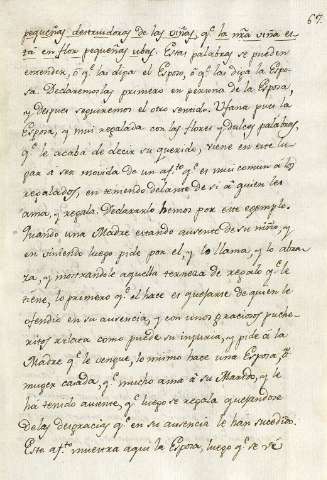 67.
pequeñas destruidoras de las viñas, qͤ la nr̃a viña es
tà en flor pequeñas ubas. Estas palabras se pueden
entender, ò qͤ las diga el Esposo, ò qͤ las diga la Espo-
sa. Declaremoslas primero en persona de la Esposa,
y despues seguiremos el otro sentido. Ufana pues la
Esposa, y mui regalada con las flores, y dulces palabras,
qͤ le acaba de decir su querido, viene en este lu
gar a ser movida de un afͭo qͤ es mui comun à los
regalados, en teniendo delante de si à quien les
ama, y regala. Declararlo hemos por este exemplo.
Quando una Madre estando ausente de su niño, y
en viniendo luego pide por el, y lo llama, y lo abra-
za, y mostrandole aquella terneza de regalo qͤ le
tiene, lo primero qͤ el hace es quejarse de quien le
ofendio en su ausencia, y con unos graciosos puche-
ritos relata como puede su injuria, y pide à la
Madre qͤ le vengue, lo mismo hace una Esposa, ò
muger casada, qͤ mucho ama à su Marido, y le
hà tenido ausente, qͤ luego se regala quejandose
de las desgracias qͤ en su ausencia le han sucedido.
Este afͭo muestra aqui la Esposa, luego qͤ se vè